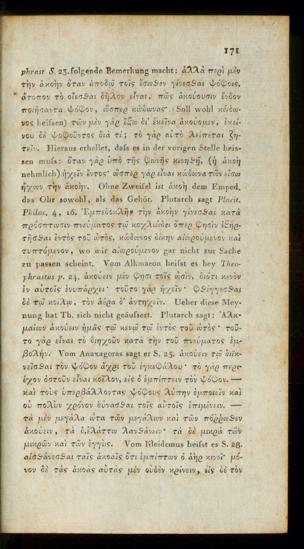 171
phrast S. 23. folgende Bemerkung macht: ἀλλὰ περὶ μὲν
τὴν ἀκοὴν ὅταν ἀποδῷ τοῖς ἔσωθεν γίνεσθαι ψόφοις,
ἄτοπον τὸ οἴεσθαι δῆλον εἶναι, πῶς ἀκούουσιν ἔνδον
ποιήσαντα ψόφον, ὥσπερ κώδωνος. (Soll wohl κώδω-
νος heissen) τῶν μὲν γὰρ ἔξω δι' ἐκεῖνα ἀκούομεν, ἐκεί-
νου δὲ ψοφοῦντος διὰ τί; τὸ γὰρ αὐτὸ λείπεται ζη-
τεῖν. Hieraus erhellet, dass es in der vorigen Stelle heis-
sen muss: ὅταν γὰρ ὑπὸ τῆς φωνῆς κινηθῇ, (ἡ ἀκοὴ
nehmlich) ἠχεῖν ἐντος· ὥσπερ γὰρ εἶναι κώδωνα τῶν εἴσω
ἤχων τὴν ἀκοήν. Ohne Zweifel ist ἀκοὴ dem Emped.
das Ohr sowohl, als das Gehör. Plutarch sagt Placit.
Philos. 4, 16. Ἐμπεδοκλῆς τὴν ἀκοὴν γίνεσθαι κατὰ
πρόσπτωσιν πνεύματος τῷ κοχλιώδει ὅπερ φησὶν ἐξηρ-
τῆσθαι ἐντὸς τοῦ ὠτὸς, κώδωνος δίκην αἰωρούμενον καὶ
τυπτόμενον, wo mir αἰωρούμενον gar nicht zur Sache
zu passen scheint. Vom Alkmaeon heisst es bey Theo-
phrastus p. 24. ἀκούειν μὲν φησι τοῖς ὠσὶν, διότι κενὸν
ἐν αὐτοῖς ἐνυπάρχει· τοῦτο γὰρ ἠχεῖν· φθέγγεσθαι
δὲ τῷ κοίλῳ, τὸν ἀέρα δ' ἀντηχεῖν. Ueber diese Mey-
nung hat Th. sich nicht geäussert. Plutarch sagt: Ἀλκ-
μαίων ἀκούειν ἡμᾶς τῷ κενῷ τῷ ἐντὸς τοῦ ὠτός· τοῦ-
το γὰρ εἶναι τὸ διηχοῦν κατὰ τὴν τοῦ πνεύματος ἐμ-
βολήν. Vom Anaxagoras sagt er S. 25. ἀκούειν τῷ διϊκ-
νεῖσθαι τὸν ψόφον ἄχρι τοῦ ἐγκεφάλου· τὸ γὰρ περι-
έχον ὀστοῦν εἶναι κοῖλον, εἰς ὃ ἐμπίπτειν τὸν ψόφον. —
καὶ τοὺς ὑπερβάλλοντας ψόφους λύπην ἐμποιεῖν καὶ
οὐ πολὺν χρόνον δύνασθαι τοῖς αὐτοῖς ἐπιμένειν. —
τὰ μὲν μεγάλα ὦτα τῶν μεγάλων καὶ τῶν πόῤῥωθεν
ἀκούειν, τὰ ἐλάττω λανθάνειν· τὰ δὲ μικρὰ τῶν
μικρῶν καὶ τῶν ἐγγύς. Vom Kleidemus heisst es S. 28.
αἰσθάνεσθαι ταῖς ἀκοαῖς ὅτι ἐμπίπτων ὁ ἀὴρ κινεῖ· μό-
νον δὲ τὰς ἀκοὰς αὐτὰς μὲν οὐδὲν κρίνειν, εἰς δὲ τὸν